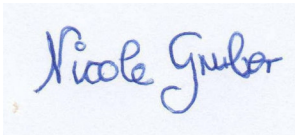 Nicole Gruber